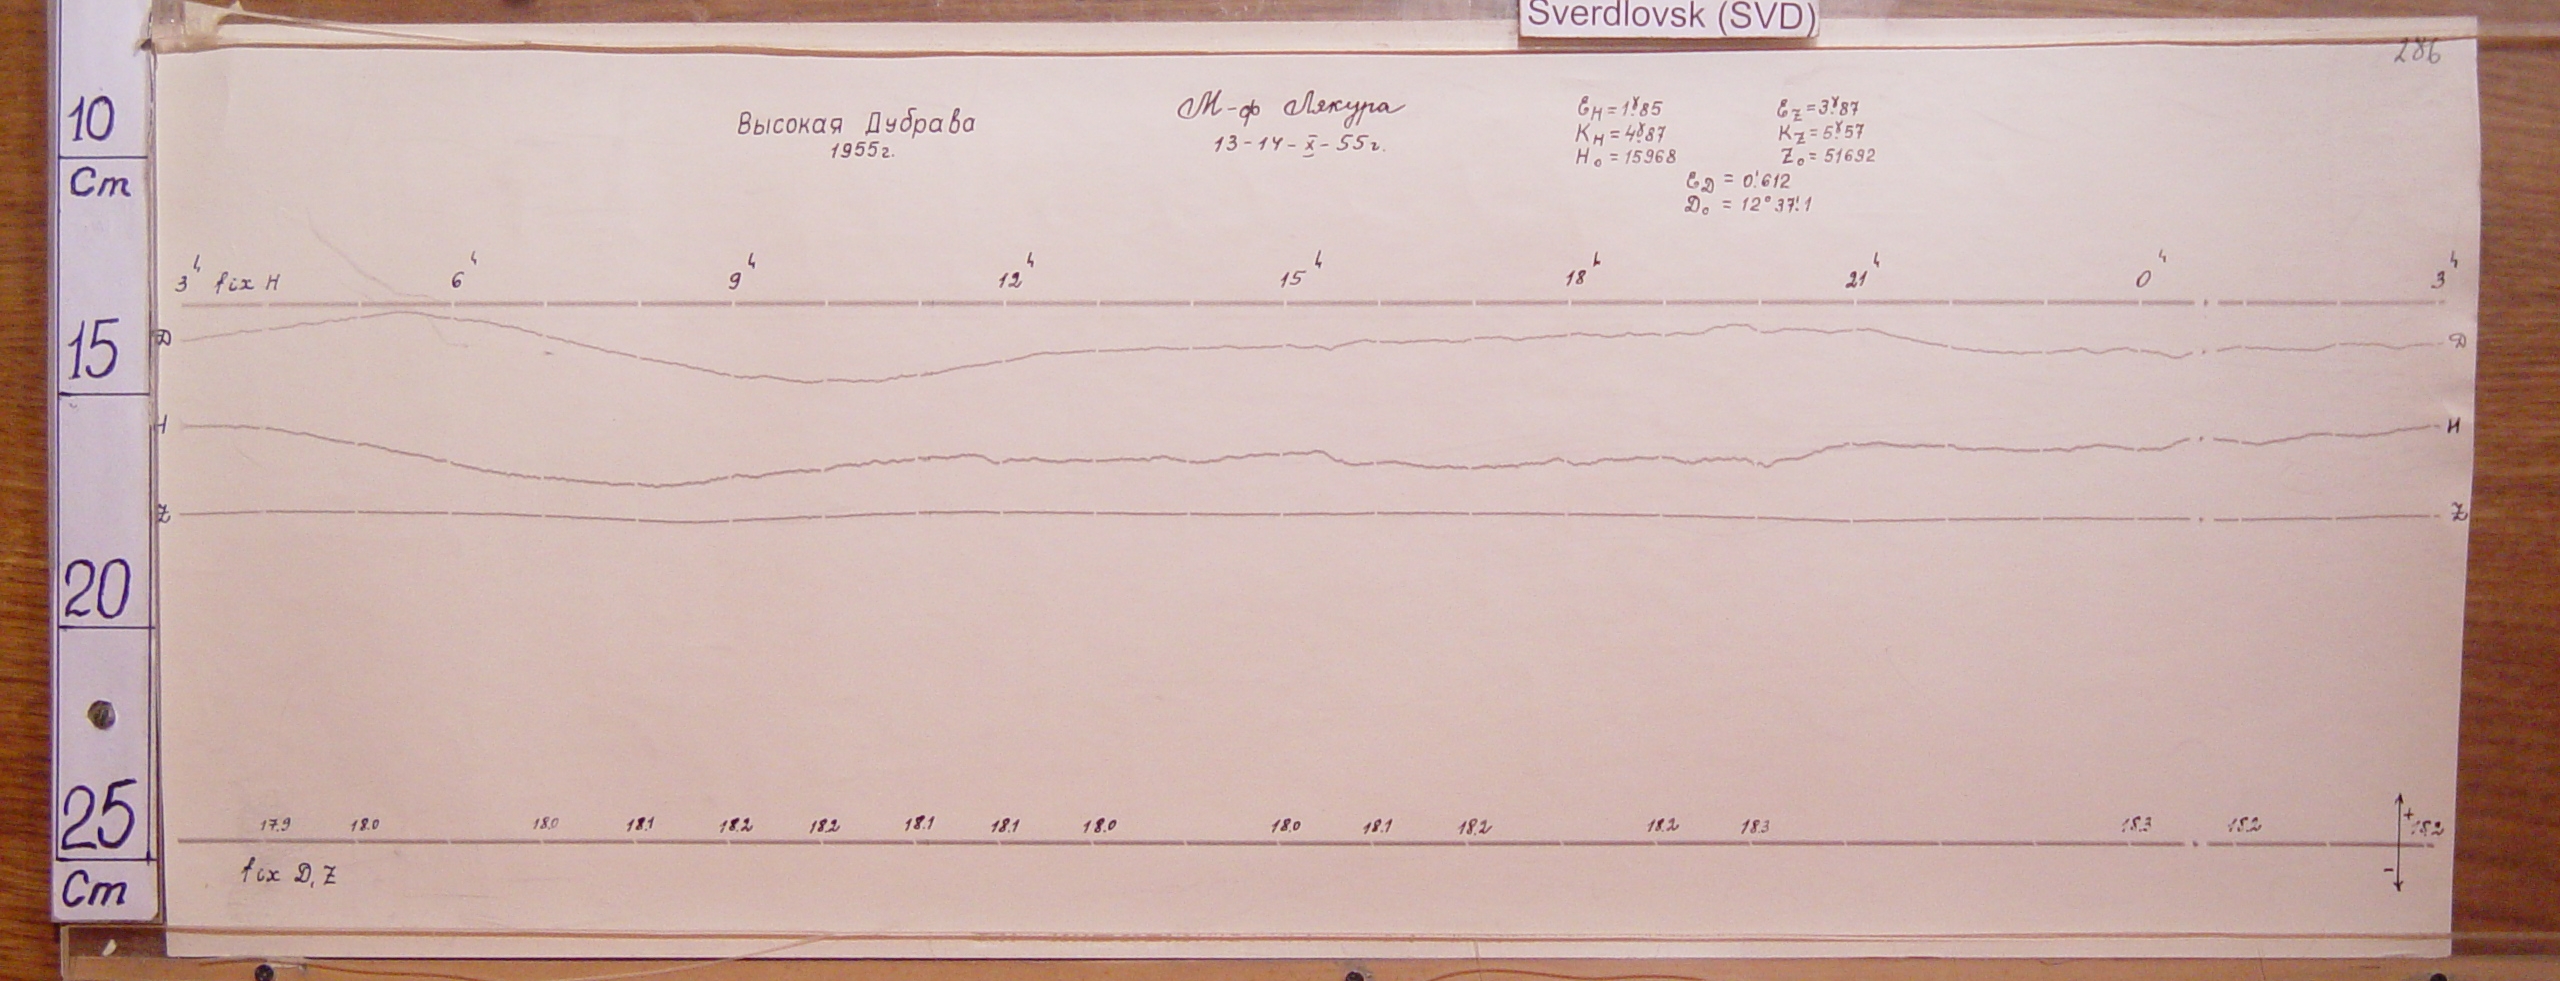 Sverdlovsk (SVD)
286
10
Cm
15
20
25
Cm
Высокая Дубрава
1955г.
М-ф Лякура
13-14-X-55г.
ℰH=1ˠ.85
KH=4ˠ.87
H₀=15968
ℰZ=3ˠ.87
KZ=5ˠ.57
Z₀=51692
ℰD=0'.612
D₀=12°37'.1
3ʰ fix H 6ʰ 9ʰ 12ʰ 15ʰ 18ʰ 21ʰ 0ʰ 3ʰ
D D
H H
Z Z
17.9 18.0 18.0 18.1 18.2 18.2 18.1 18.1 18.0 18.0 18.1 18.2 18.2 18.3 18.3 18.2 18.2
+
-
fix D, Z